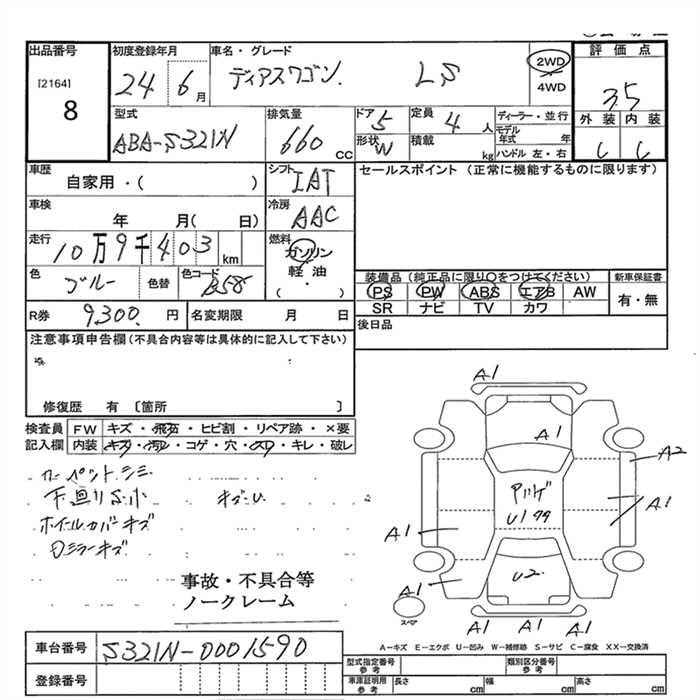 出品番号
[2164]
8
初度登録年月
24 6月
車名・グレード
ディアスワゴン LS
2WD
4WD
評価点
3.5
外装 内装
C C
型式
ABA-S321N
排気量
660 CC
ドア 5
形状 W
定員 4 人
積載 kg
ディーラー・並行
モデル年式 年
ハンドル 左・右
車歴
自家用・( )
シフト IAT
セールスポイント (正常に機能するものに限ります)
車検
年 月( 日)
冷房 AAC
走行
10万9千403km
燃料
ガソリン
軽油
・
( )
色 ブルー
色替
色コード B58
装備品 (純正品に限り○をつけてください)
新車保証書
PS PW ABS エアB AW
有・無
SR ナビ TV カワ
R券 9,300 円
名変期限 月 日
後日品
注意事項申告欄(不具合内容等は具体的に記入して下さい)
修復歴 有 〔箇所 〕
検査員記入欄
FW キズ・飛石・ヒビ割・リペア跡・×要
内装 キズ・汚レ・コゲ・穴・スレ・キレ・破レ
カーペットシミ
下廻りS小 キズ・U
ホイールカバーキズ
Dミラーキズ
事故・不具合等
ノークレーム
A1
A1
A2
A1
U1
A1
A1
U2
A1 A1 A1
スペア
A-キズ E-エクボ U-凹み W-補修跡 S-サビ C-腐食 XX-交換済
車台番号 S321N-0001590
登録番号
型式指定番号 参考
類別区分番号 参考
車庫証明用 参考
長さ cm
幅 cm
高さ cm